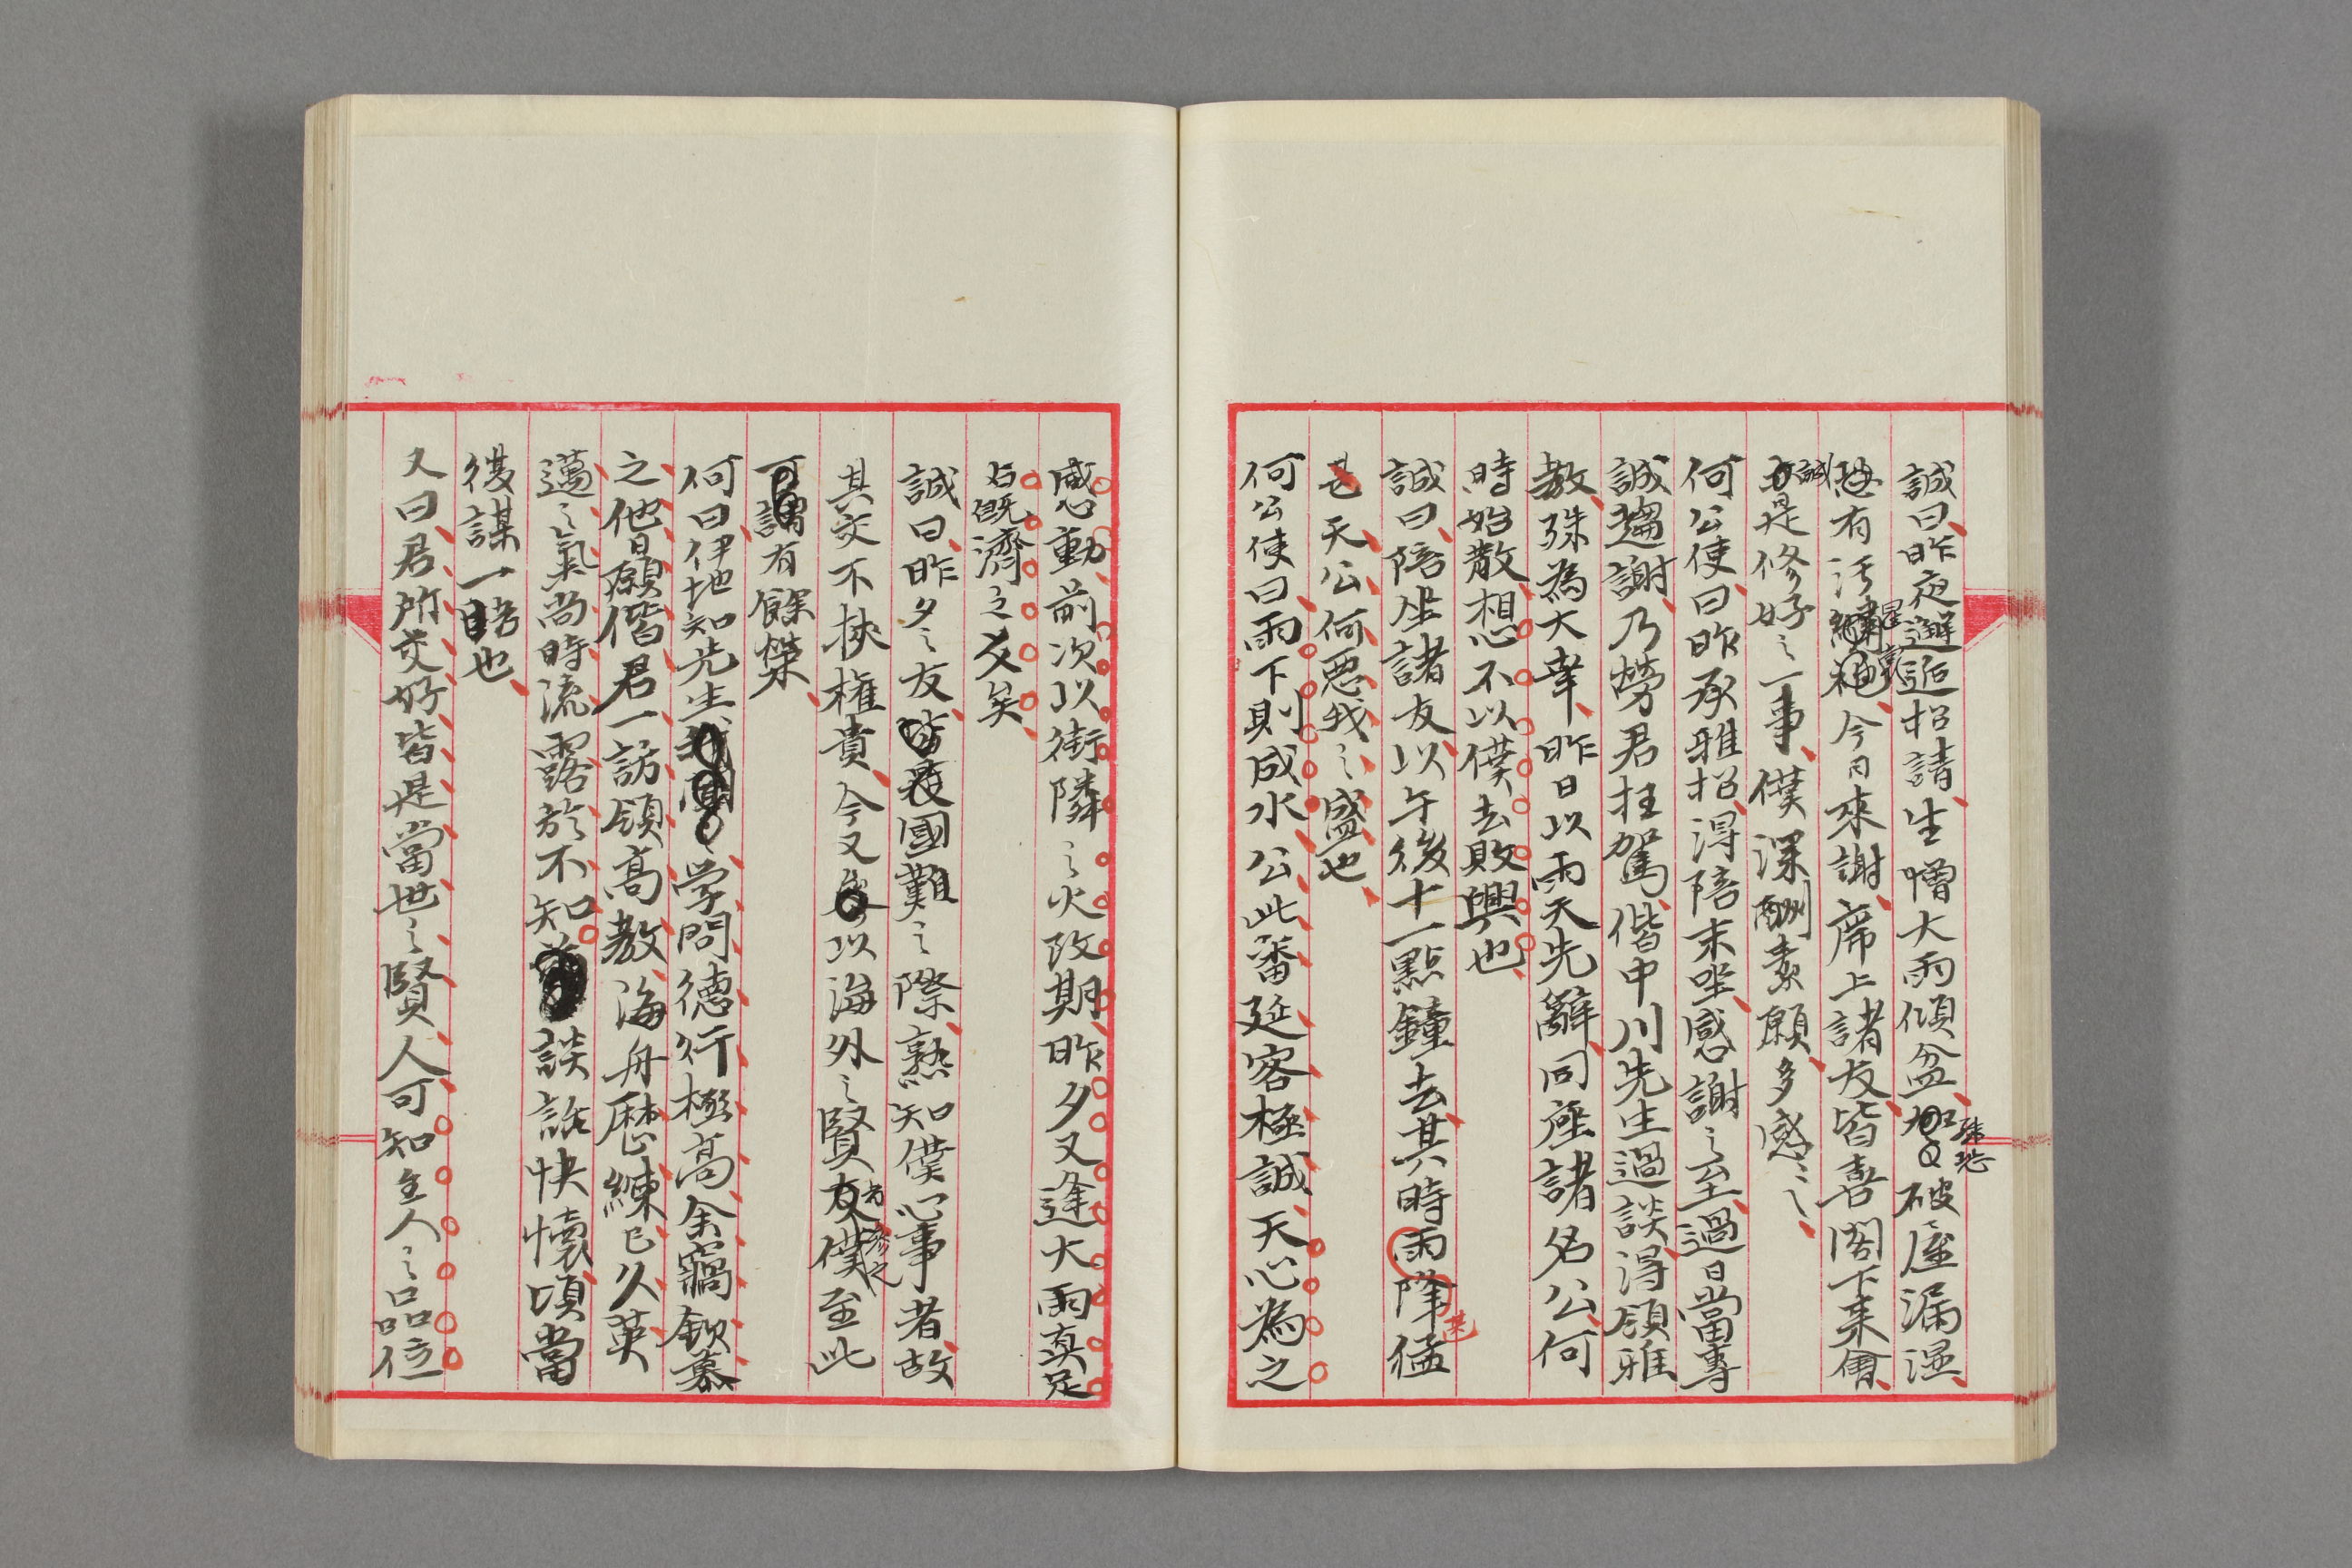 誠曰昨夜邂逅招請生憎大雨傾盆殊恐破屋漏湿
有汚星裳今日來謝席上諸友皆喜閣下来會
誠是修好之一事僕深酬素願多感々々
何公使曰昨承雅招得陪末坐感謝之至過日當專
誠趨謝乃勞君枉駕偕中川先生過談得領雅
教殊為大幸昨日以雨天先辭同座諸名公何
時始散想不以僕去敗興也
誠曰陪坐諸友以午後十一點鐘去其時雨降猛
甚天公何惡我之盛也
何公使曰雨下則成水公此番延客極誠天心為之
感動前次以街隣之火改期昨夕又逢大雨真足
占既濟之爻矣
誠曰昨夕之友皆國難之際熟知僕心事者故
其交不挾權貴今又以海外之賢友参之僕至此
有餘榮
何曰伊地知先生学問德行極高余竊欽慕
之他日願偕君一訪領高教海舟歴練已久英
邁之氣尚時流露於不知談話快懐頃當
後謀一晤也
又曰君所交好皆是當世之賢人可知主人之品位